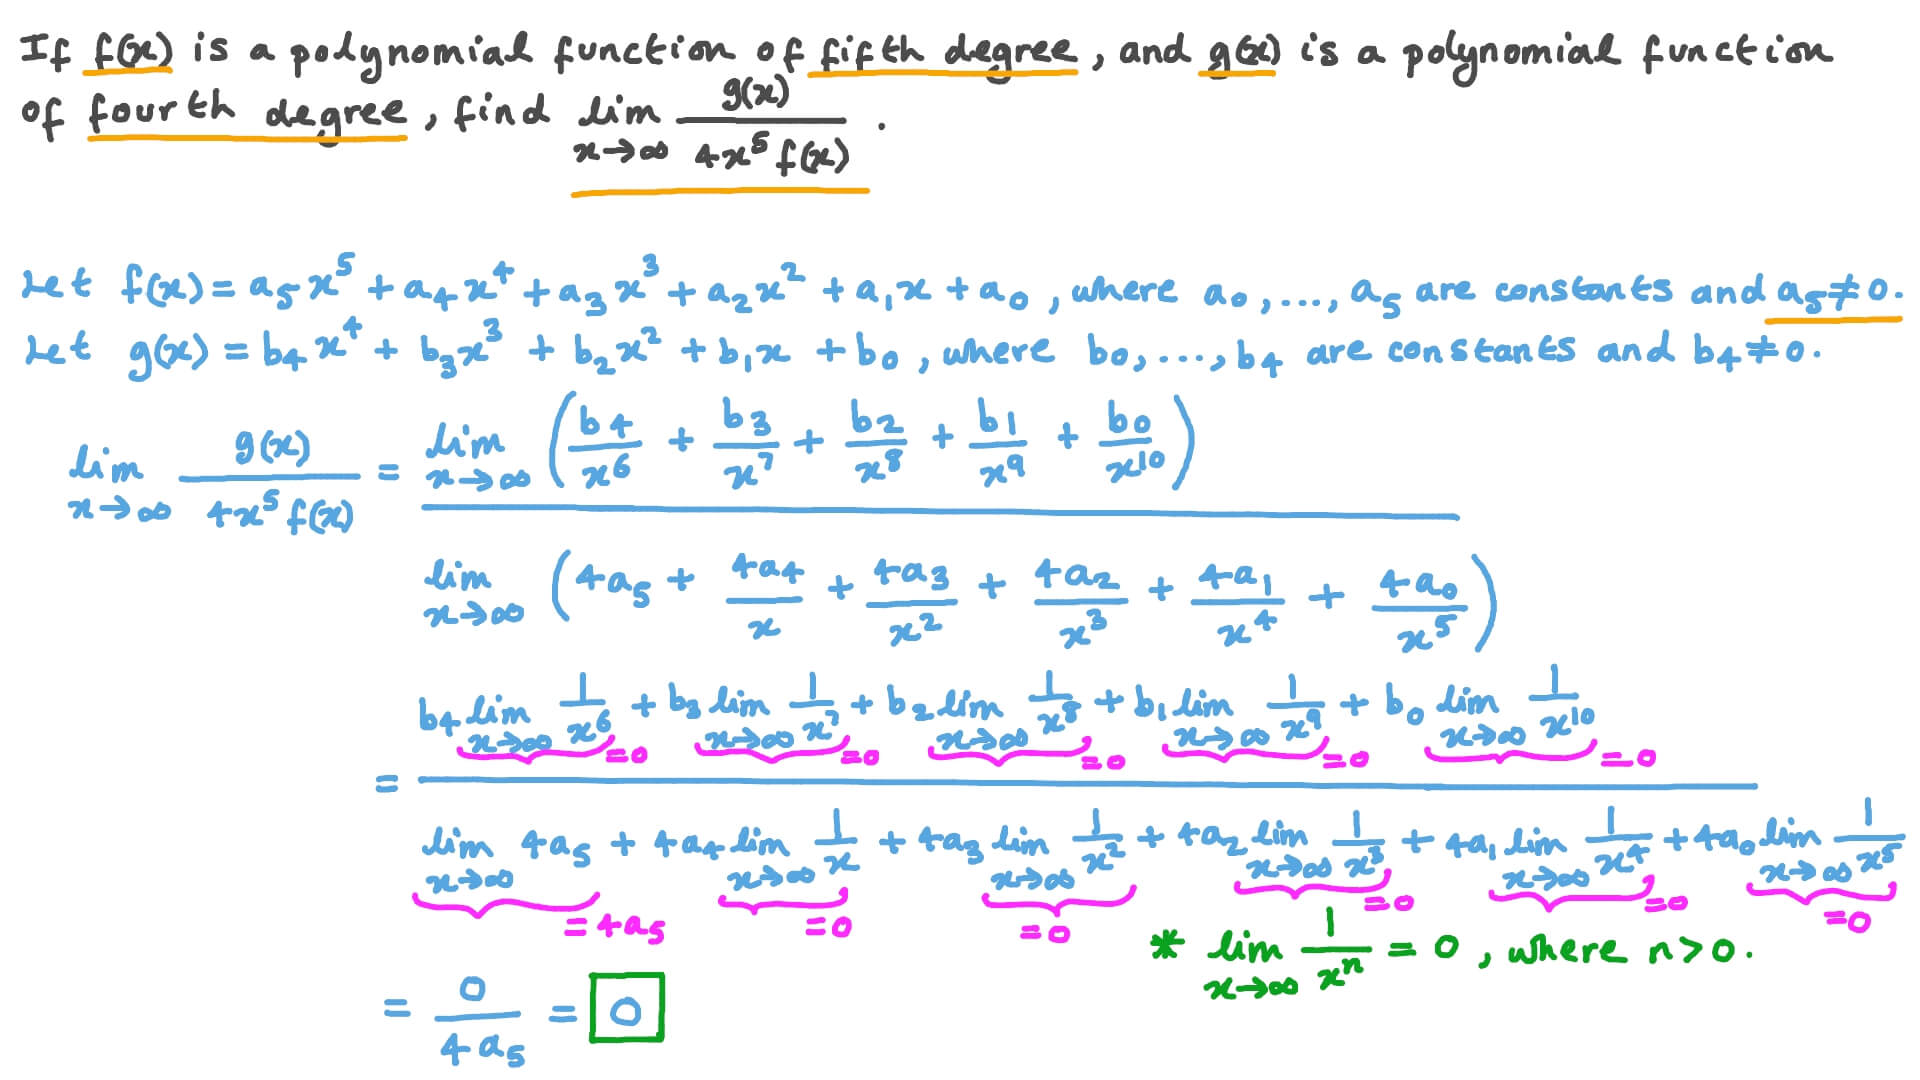 If f(x) is a polynomial function of fifth degree, and g(x) is a polynomial function
of fourth degree, find lim x→∞ g(x) / 4x⁵ f(x) .
Let f(x) = a₅x⁵ + a₄x⁴ + a₃x³ + a₂x² + a₁x + a₀, where a₀, ..., a₅ are constants and a₅ ≠ 0.
Let g(x) = b₄x⁴ + b₃x³ + b₂x² + b₁x + b₀, where b₀, ..., b₄ are constants and b₄ ≠ 0.
lim x→∞ g(x) / 4x⁵ f(x) = lim x→∞ (b₄/x⁶ + b₃/x⁷ + b₂/x⁸ + b₁/x⁹ + b₀/x¹⁰)
lim x→∞ (4a₅ + 4a₄/x + 4a₃/x² + 4a₂/x³ + 4a₁/x⁴ + 4a₀/x⁵)
= b₄ lim x→∞ 1/x⁶ + b₃ lim x→∞ 1/x⁷ + b₂ lim x→∞ 1/x⁸ + b₁ lim x→∞ 1/x⁹ + b₀ lim x→∞ 1/x¹⁰
=0 =0 =0 =0 =0
lim x→∞ 4a₅ + 4a₄ lim x→∞ 1/x + 4a₃ lim x→∞ 1/x² + 4a₂ lim x→∞ 1/x³ + 4a₁ lim x→∞ 1/x⁴ + 4a₀ lim x→∞ 1/x⁵
=4a₅ =0 =0 =0 =0 =0
* lim x→∞ 1/xⁿ = 0, where n>0.
= 0 / 4a₅ = 0